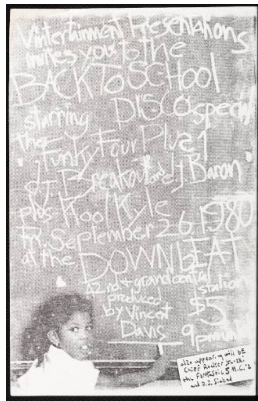 Vintertainment Presentations
invites you to the
BACK TO SCHOOL
DISCO special
starring
the Funky Four Plus 1
DJ Breakout and DJ Baron
plus Kool Kyle
fri. September 26, 1980
at the DOWNBEAT
42nd & grand central station
produced by Vincent Davis
$5
9pm until
also appearing will be
Chief Rocker
the Fantastic 5 M.C.'s
and D.J.